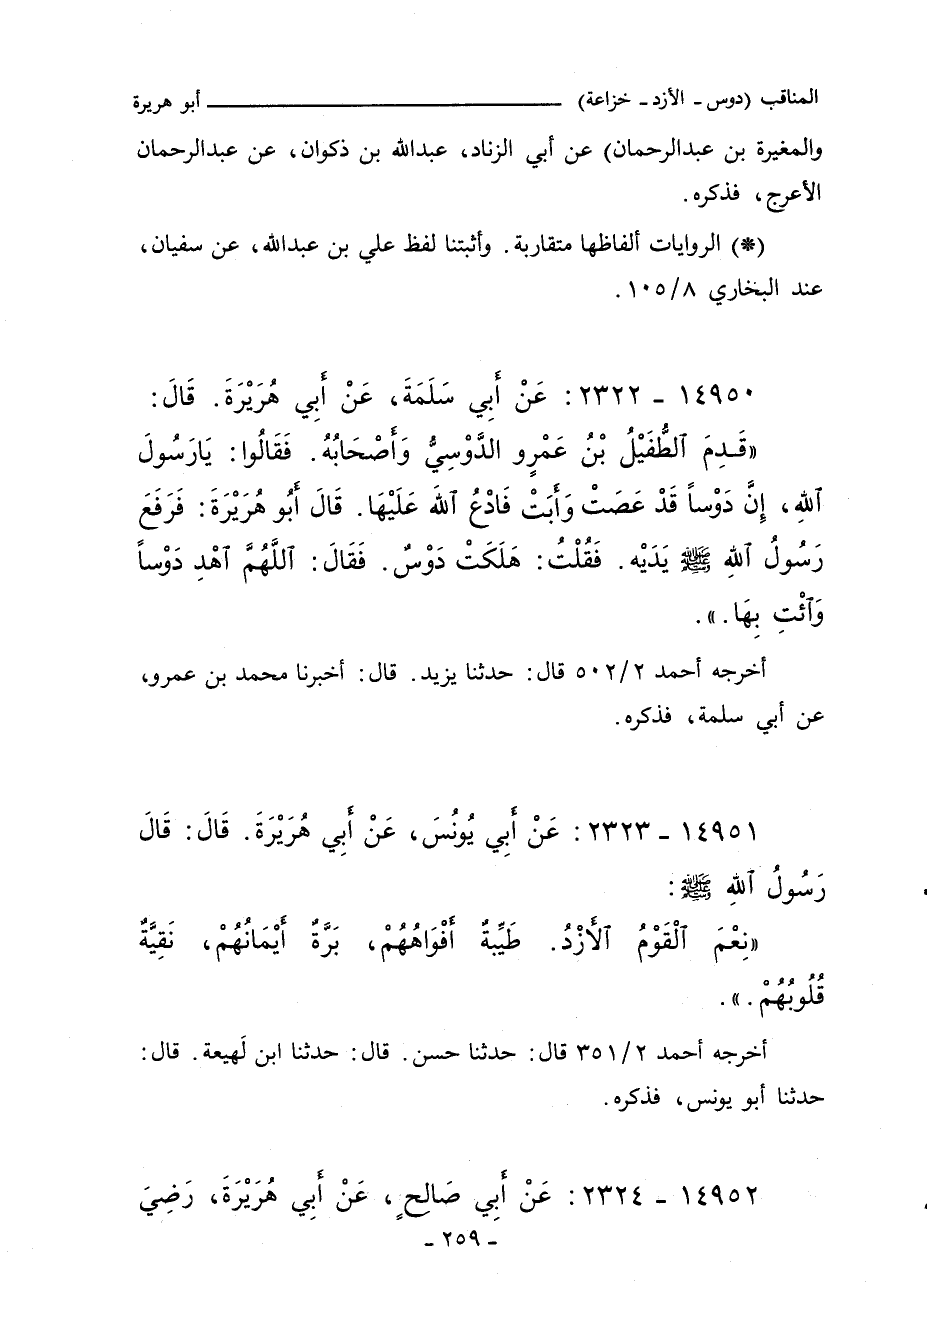 المناقب (دوس - الأزد - خزاعة) ــــــــــــــــ أبو هريرة
والمغيرة بن عبدالرحمان) عن أبي الزناد، عبدالله بن ذكوان، عن عبدالرحمان
الأعرج، فذكره.
(*) الروايات ألفاظها متقاربة. وأثبتنا لفظ علي بن عبدالله، عن سفيان،
عند البخاري ٨/١٠٥.
١٤٩٥٠ - ٢٣٢٢: عَنْ أَبِي سَلَمَةَ، عَنْ أَبِي هُرَيْرَةَ. قَالَ:
«قَدِمَ ٱلطُّفَيْلُ بْنُ عَمْرٍو الدَّوْسِيُّ وَأَصْحَابُهُ. فَقَالُوا: يَارَسُولَ
ٱللهِ، إِنَّ دَوْساً قَدْ عَصَتْ وَأَبَتْ فَادْعُ ٱللهَ عَلَيْهَا. قَالَ أَبُو هُرَيْرَةَ: فَرَفَعَ
رَسُولُ ٱللهِ ﷺ يَدَيْهِ. فَقُلْتُ: هَلَكَتْ دَوْسٌ. فَقَالَ: ٱللَّهُمَّ ٱهْدِ دَوْساً
وَٱئْتِ بِهَا.».
أخرجه أحمد ٢/٥٠٢ قال: حدثنا يزيد. قال: أخبرنا محمد بن عمرو،
عن أبي سلمة، فذكره.
١٤٩٥١ - ٢٣٢٣: عَنْ أَبِي يُونُسَ، عَنْ أَبِي هُرَيْرَةَ. قَالَ: قَالَ
رَسُولُ ٱللهِ ﷺ:
«نِعْمَ ٱلْقَوْمُ ٱلأَزْدُ. طَيِّبةٌ أَفْوَاهُهُمْ، بَرَّةٌ أَيْمَانُهُمْ، نَقِيَّةٌ
قُلُوبُهُمْ.».
أخرجه أحمد ٢/٣٥١ قال: حدثنا حسن. قال: حدثنا ابن لَهيعة. قال:
حدثنا أبو يونس، فذكره.
١٤٩٥٢ - ٢٣٢٤: عَنْ أَبِي صَالحٍ، عَنْ أَبِي هُرَيْرَةَ، رَضِيَ
- ٢٥٩ -